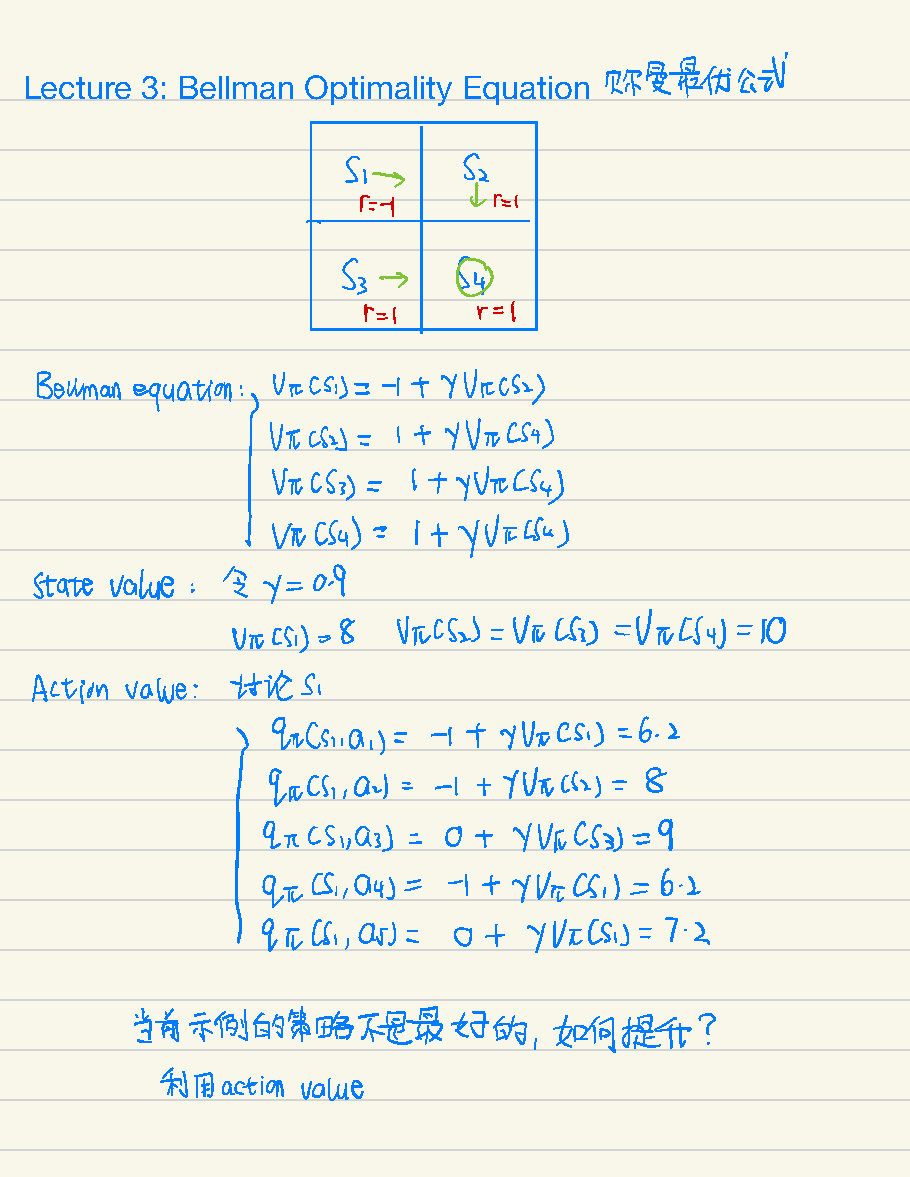 Lecture 3: Bellman Optimality Equation 贝尔曼最优公式
S₁ → S₂
r=-1 ↓ r=1
S₃ → S₄
r=1 r=1
Bellman equation: Vπ(S₁) = -1 + γVπ(S₂)
Vπ(S₂) = 1 + γVπ(S₄)
Vπ(S₃) = 1 + γVπ(S₄)
Vπ(S₄) = 1 + γVπ(S₄)
State value: 令 γ = 0.9
Vπ(S₁) = 8 Vπ(S₂) = Vπ(S₃) = Vπ(S₄) = 10
Action value: 讨论 S₁
qπ(S₁, a₁) = -1 + γVπ(S₁) = 6.2
qπ(S₁, a₂) = -1 + γVπ(S₂) = 8
qπ(S₁, a₃) = 0 + γVπ(S₃) = 9
qπ(S₁, a₄) = -1 + γVπ(S₁) = 6.2
qπ(S₁, a₅) = 0 + γVπ(S₁) = 7.2
当前示例的策略不是最好的, 如何提升?
利用action value